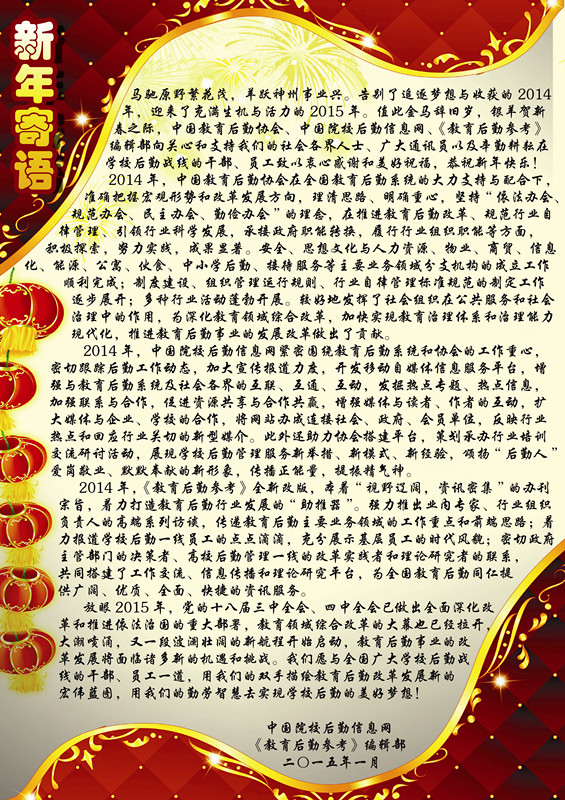 新年寄语
马驰原野繁花茂，羊跃神州事业兴。告别了追逐梦想与收获的 2014
年，迎来了充满生机与活力的 2015 年。值此金马辞旧岁，银羊贺新
春之际，中国教育后勤协会、中国院校后勤信息网、《教育后勤参考》
编辑部向关心和支持我们的社会各界人士、广大通讯员以及辛勤耕耘在
学校后勤战线的干部、员工致以衷心感谢和美好祝福，恭祝新年快乐！
2014 年，中国教育后勤协会在全国教育后勤系统的大力支持与配合下，
准确把握宏观形势和改革发展方向，理清思路、明确重心，坚持“依法办会、
规范办会、民主办会、勤俭办会”的理念，在推进教育后勤改革、规范行业自
律管理、引领行业科学发展，承接政府职能转换，履行行业组织职能等方面，
积极探索，努力实践，成果显著。安全、思想文化与人力资源、物业、商贸、信息
化、能源、公寓、伙食、中小学后勤、接待服务等主要业务领域分支机构的成立工作
顺利完成；制度建设、组织管理运行规则、行业自律管理标准规范的制定工作
逐步展开；多种行业活动蓬勃开展。较好地发挥了社会组织在公共服务和社会
治理中的作用，为深化教育领域综合改革，加快实现教育治理体系和治理能力
现代化，推进教育后勤事业的发展改革做出了贡献。
2014 年，中国院校后勤信息网紧密围绕教育后勤系统和协会的工作重心，
密切跟踪后勤工作动态，加大宣传报道力度，开发移动自媒体信息服务平台，增
强与教育后勤系统及社会各界的互联、互通、互动，发掘热点专题、热点信息，
加强联系与合作，促进资源共享与合作共赢，增强媒体与读者、作者的互动，扩
大媒体与企业、学校的合作，将网站办成连接社会、政府、会员单位，反映行业
热点和回应行业关切的新型媒介。此外还助力协会搭建平台，策划承办行业培训
交流研讨活动，展现学校后勤管理服务新举措、新模式、新经验，颂扬“后勤人”
爱岗敬业、默默奉献的新形象，传播正能量，提振精气神。
2014 年，《教育后勤参考》全新改版，本着“视野辽阔，资讯密集”的办刊
宗旨，着力打造教育后勤行业发展的“助推器”。强力推出业内专家、行业组织
负责人的高端系列访谈，传递教育后勤主要业务领域的工作重点和前端思路；着
力报道学校后勤一线员工的点点滴滴，充分展示基层员工的时代风貌；密切政府
主管部门的决策者、高校后勤管理一线的改革实践者和理论研究者的联系，
共同搭建了工作交流、信息传播和理论研究平台，为全国教育后勤同仁提
供广阔、优质、全面、快捷的资讯服务。
放眼 2015 年，党的十八届三中全会、四中全会已做出全面深化改
革和推进依法治国的重大部署，教育领域综合改革的大幕也已经拉开，
大潮喷涌，又一段波澜壮阔的新航程开始启动，教育后勤事业的改
革发展将面临诸多新的机遇和挑战。我们愿与全国广大学校后勤战
线的干部、员工一道，用我们的双手描绘教育后勤改革发展新的
宏伟蓝图，用我们的勤劳智慧去实现学校后勤的美好梦想！
中国院校后勤信息网
《教育后勤参考》编辑部
二〇一五年一月